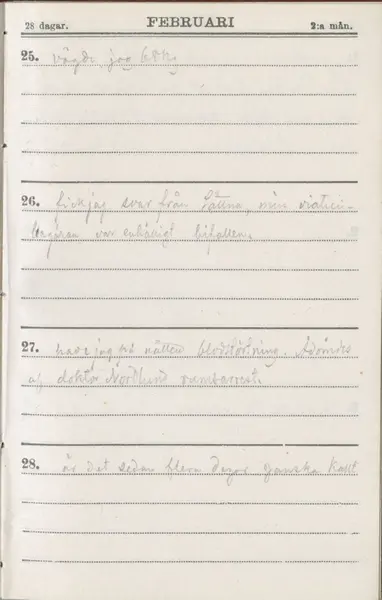 28 dagar. FEBRUARI 2:a mån.
25. vägde jag 68 kg
26. fick jag svar från Sätna, min viaticu-
begäran var enhälligt bifallen.
27. hade jag på natten blodstörtning. Ådömdes
af doktor Nordlund rumsarrest.
28. är det sedan flera dagar ganska kallt